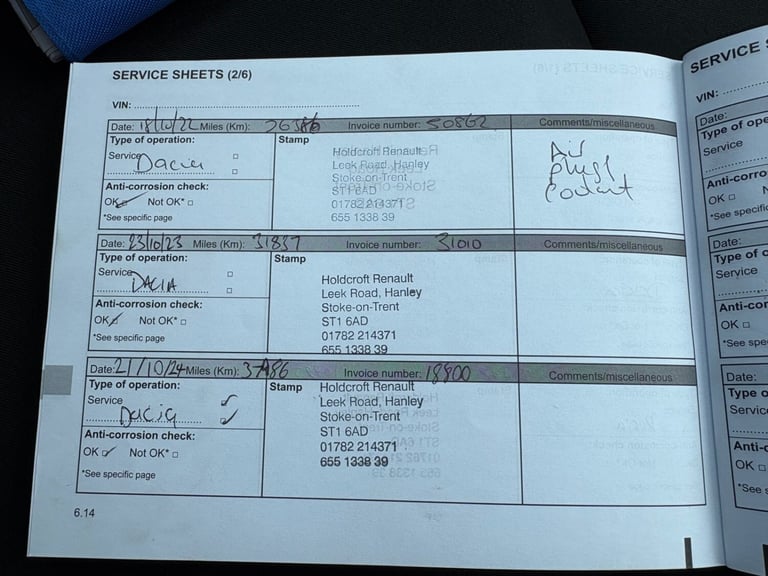 SERVICE SHEETS (2/6)
VIN:
Date: 18/10/22 Miles (Km): Invoice number: 50862 Comments/miscellaneous
Type of operation: Stamp
Service Dacia
Holdcroft Renault
Leek Road, Hanley
Stoke-on-Trent
ST1 6AD
01782 214371
655 1338 39
Air
plugs
Coolant
Anti-corrosion check:
OK Not OK*
*See specific page
Date: 23/10/23 Miles (Km): 31837 Invoice number: 31010 Comments/miscellaneous
Type of operation: Stamp
Service DACIA
Holdcroft Renault
Leek Road, Hanley
Stoke-on-Trent
ST1 6AD
01782 214371
655 1338 39
Anti-corrosion check:
OK Not OK*
*See specific page
Date: 21/10/24 Miles (Km): Invoice number: 18800 Comments/miscellaneous
Type of operation: Stamp
Service Dacia
Holdcroft Renault
Leek Road, Hanley
Stoke-on-Trent
ST1 6AD
01782 214371
655 1338 39
Anti-corrosion check:
OK Not OK*
*See specific page
6.14
SERVICE S
VIN:
Date:
Type of ope
Service
Anti-corro
OK
*See specific
Date:
Type of o
Service
Anti-cor
OK
*See spe
Date:
Type o
Servic
Anti-c
OK
*See s